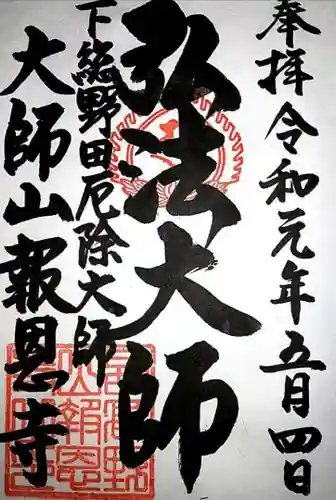 奉拝 令和元年五月四日
弘法大師
下総野田厄除大師
大師山報恩寺